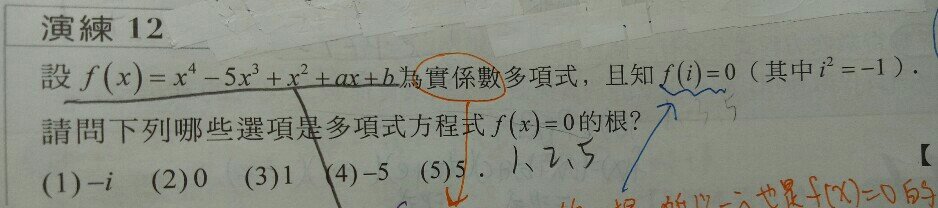 演練 12
設 f(x)=x⁴-5x³+x²+ax+b 為實係數多項式，且知 f(i)=0（其中 i²=-1）.
請問下列哪些選項是多項式方程式 f(x)=0 的根？
1、2、5
(1)-i (2)0 (3)1 (4)-5 (5)5 .
也是f(x)=0的